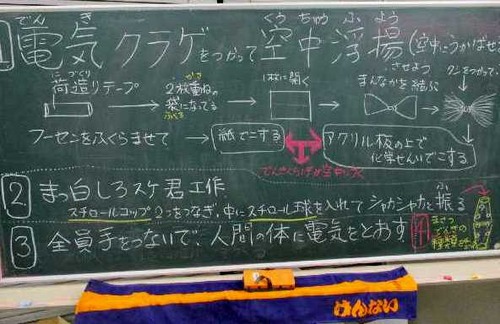 でん き　くう ちゅう ふ よう
1 電気クラゲをつかって空中浮揚(空中にうかばせ
にづくり
荷造りテープ → 2枚重ねの袋になってる → 1枚に開く → まんなかを結ぶ →
かさ
ふくろ
フーセンをふくらませて → 紙でこする
アクリル板の上で化学せんいでこする
2 まっ白しろスケ君工作
スチロールコップ2つをつなぎ、中にスチロール球を入れてシャカシャカと振る
ふ
3 全員手をつないで、人間の体に電気をとおす
けんない